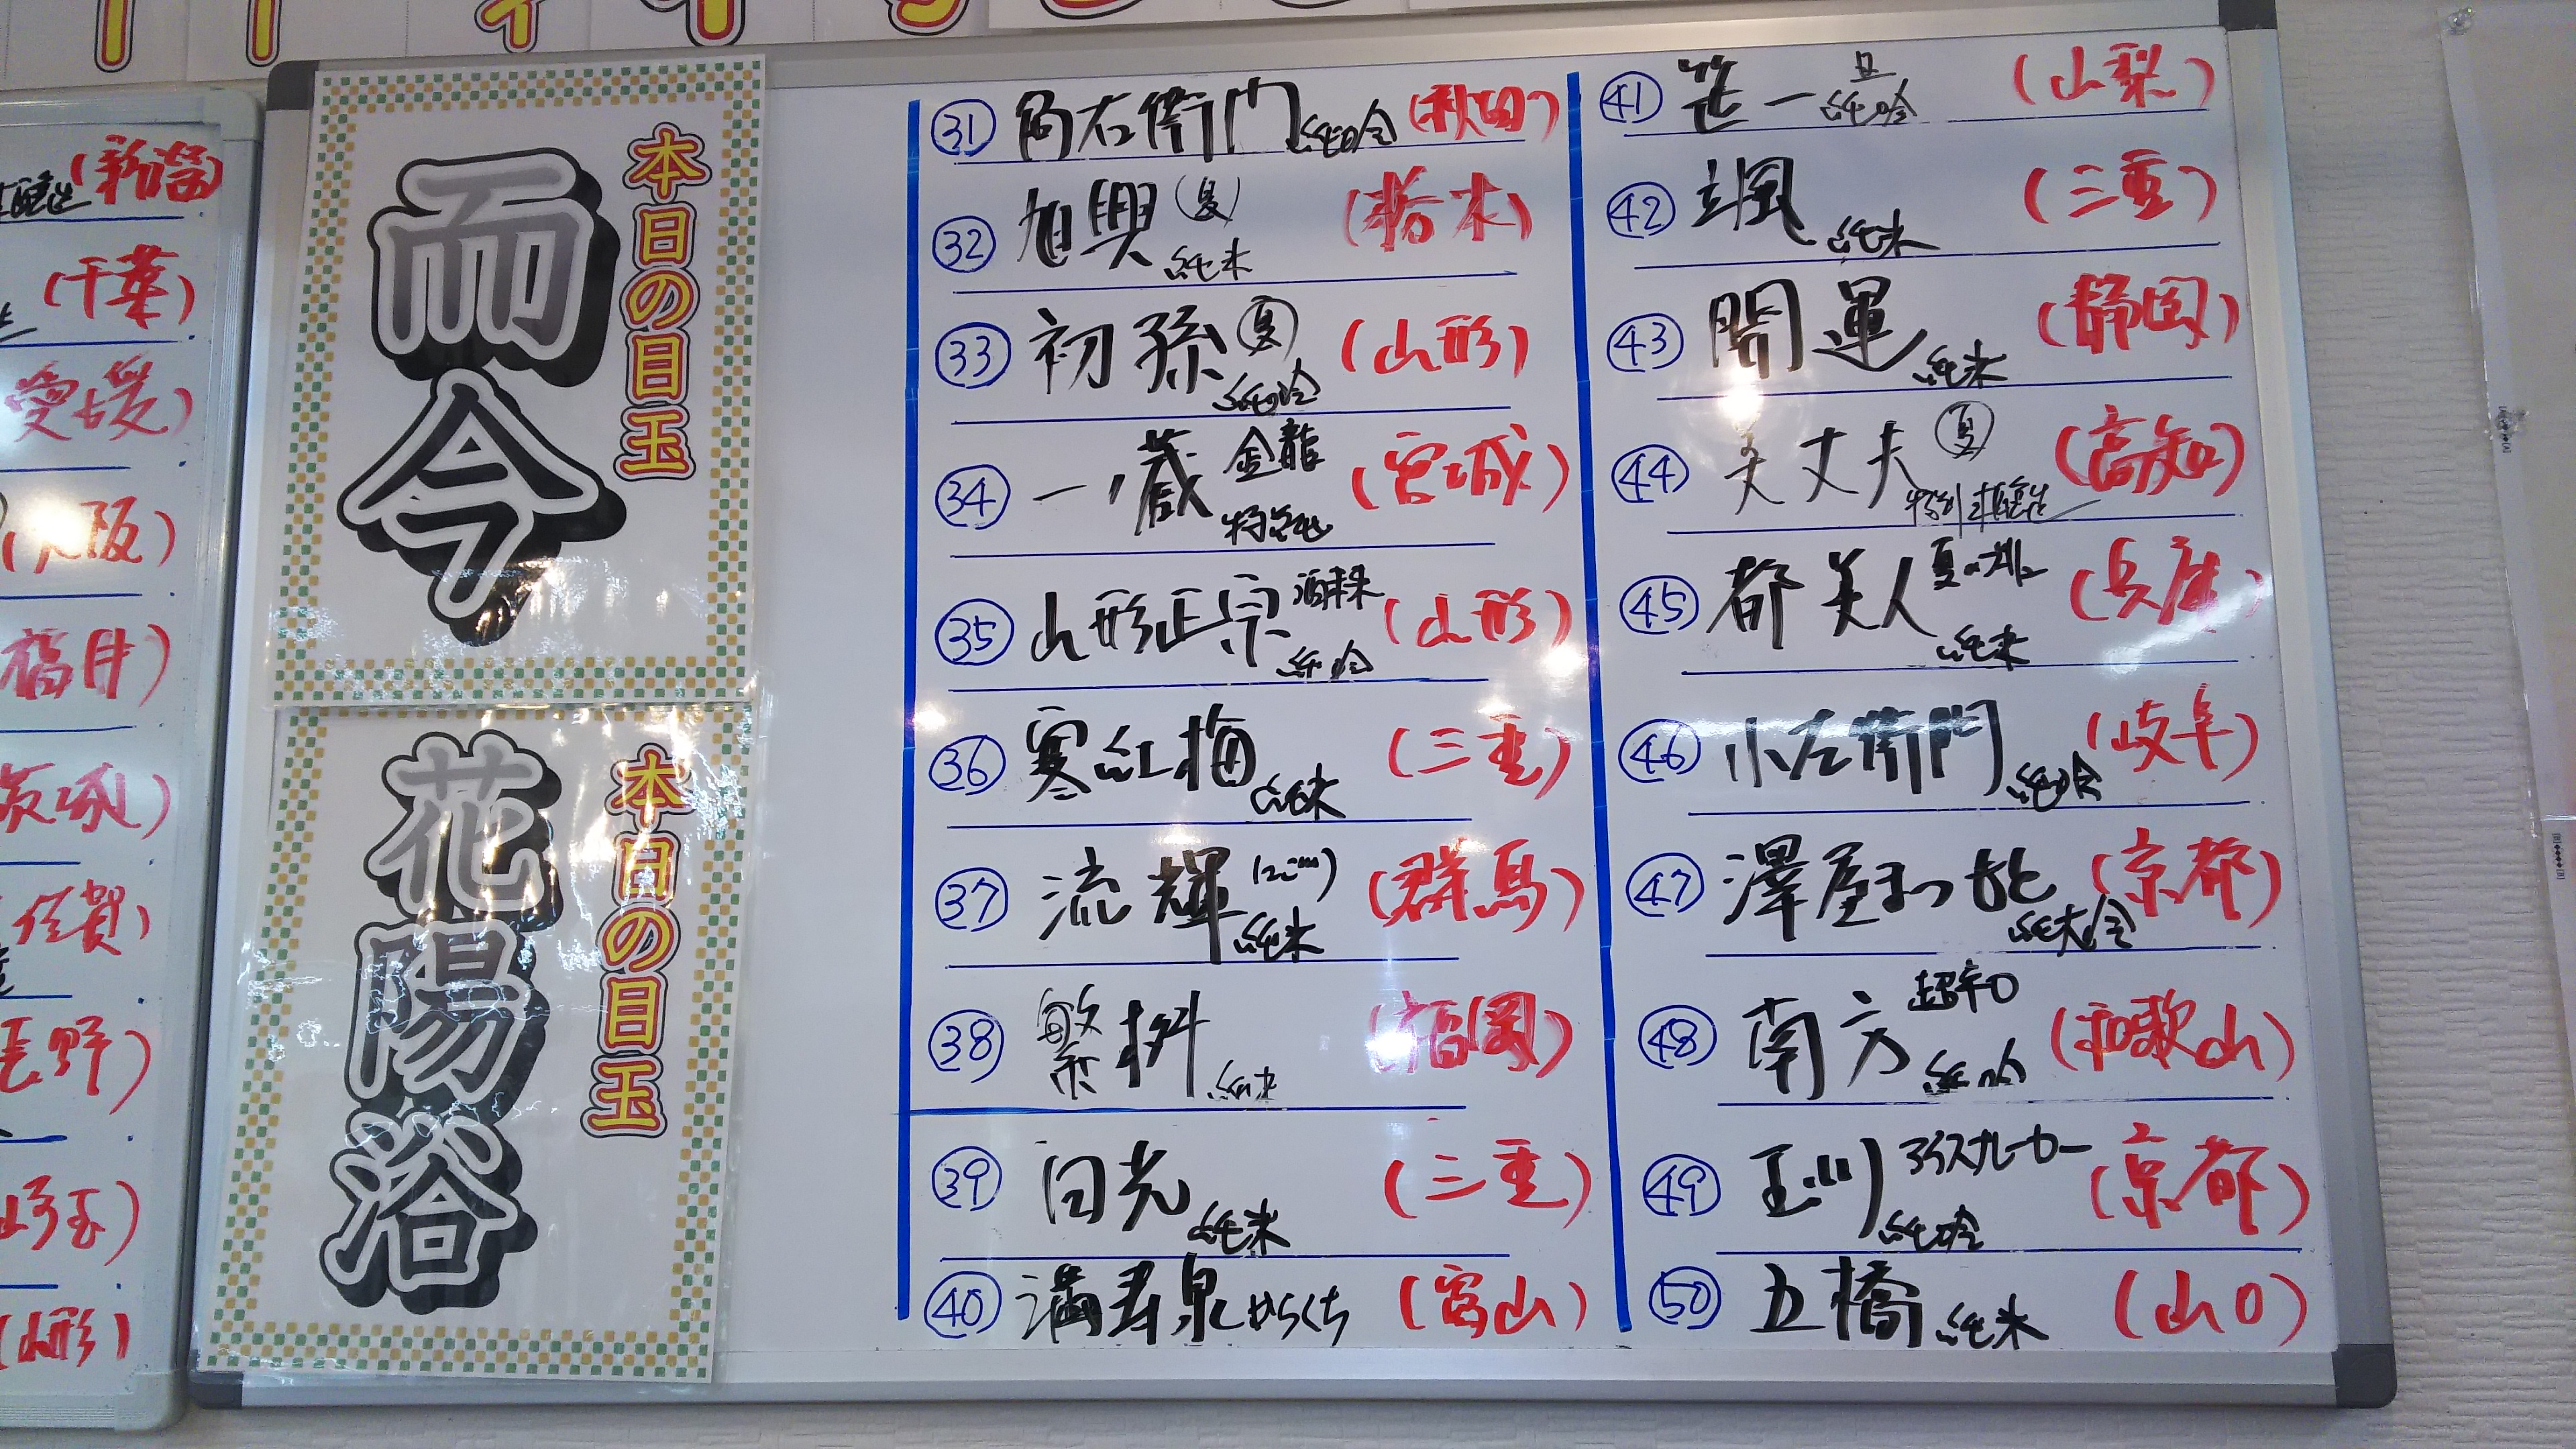 (新潟)
(千葉)
愛媛)
(大阪)
福井)
茨城)
佐賀)
長野)
埼玉)
(山形)
本日の目玉
而今
本日の目玉
花陽浴
㉛ 角右衛門 純吟 (秋田)
㉜ 旭興 (夏) 純米 (栃木)
㉝ 初孫 夏 純吟 (山形)
㉞ 一ノ蔵 金龍 特純 (宮城)
㉟ 山形正宗 酒未来 純吟 (山形)
㊱ 寒紅梅 純米 (三重)
㊲ 流輝 純米 (群馬)
㊳ 繁桝 純米 (福岡)
㊴ 日光 純米 (三重)
㊵ 満寿泉 からくち (富山)
㊶ 笹一 旦 純吟 (山梨)
㊷ 颯 純米 (三重)
㊸ 開運 純米 (静岡)
㊹ 美丈夫 夏 特別本醸造 (高知)
㊺ 都美人 夏の 純米 (兵庫)
㊻ 小左衛門 純吟 (岐阜)
㊼ 澤屋まつもと 純大吟 (京都)
㊽ 南方 超辛口 純吟 (和歌山)
㊾ 玉川 アイスブレーカー 純吟 (京都)
㊿ 五橋 純米 (山口)